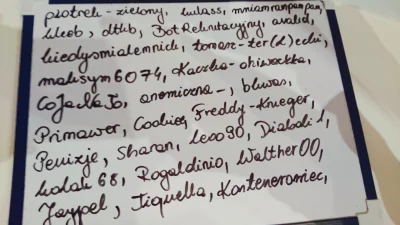 piotrek-zielony, kulass, mniamranpampam,
kleeb, dtbb, Bot Rekrutacyjny, avalid,
kiedysmialemnick, tomasz-ter(2)ecki,
maksym6074, Kaczka-ohiwacka,
CoJaNaTo, anemiczna-, bluas,
Primawer, Cookiee, Freddy-Krueger,
Penixje, Sharan, Leoo90, Diabodi1,
kolak68, Rogaldinio, Walther00,
Jaypel, Tiquella, Konteneromiec,